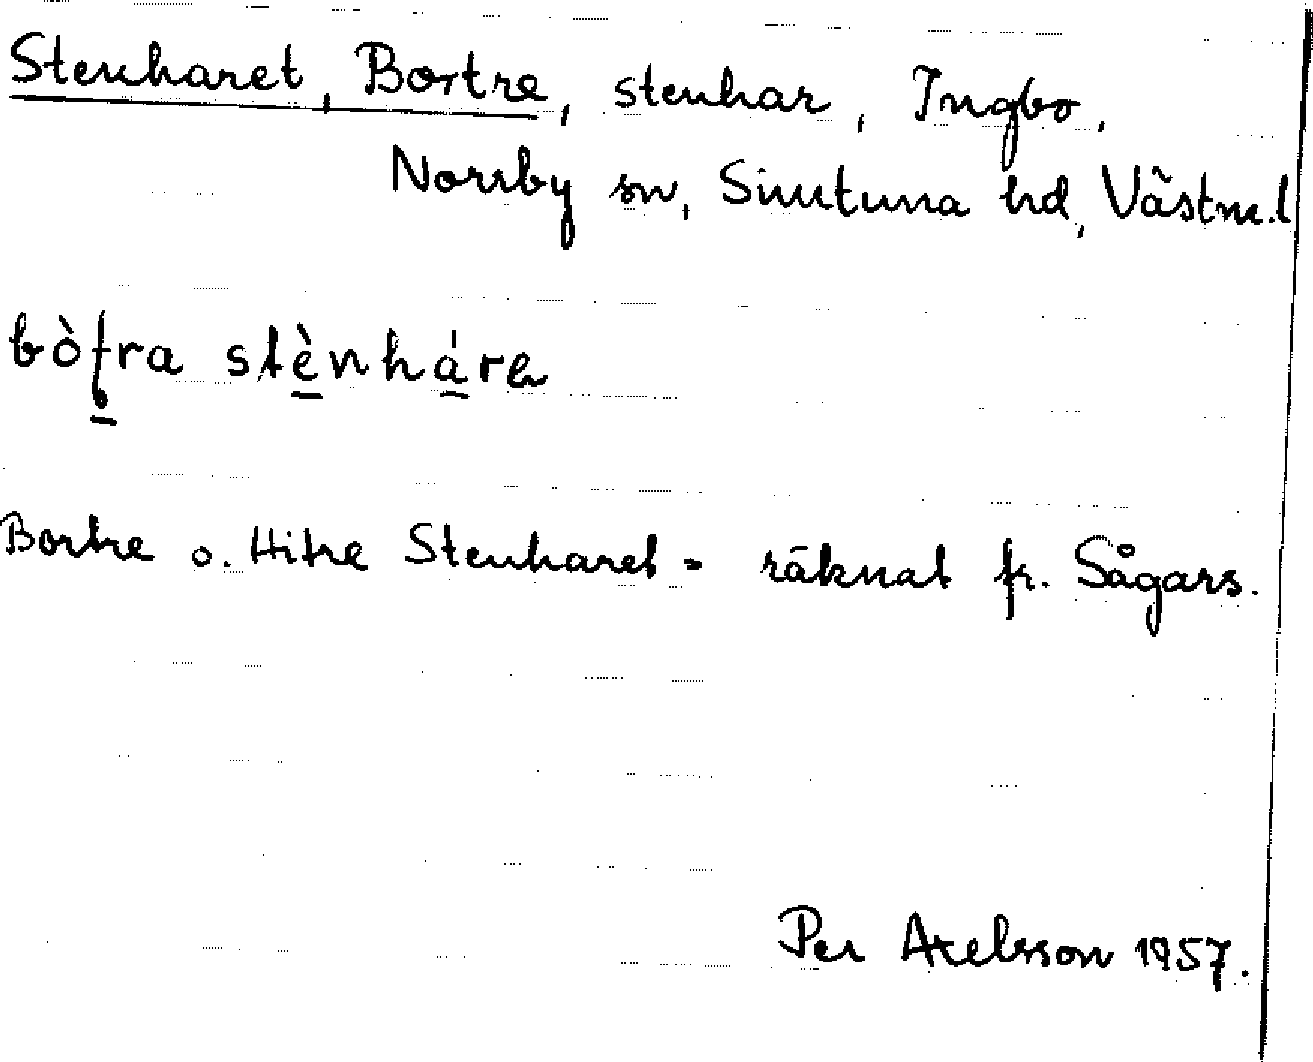 Stenharet, Bortre, stenhar, Ingbo,
Norrby sn, Simtuna hd, Västm.l
bòʈra stènháre
Bortre o. Hitre Stenharet - räknat fr. Sågars.
Per Axelsson 1957.